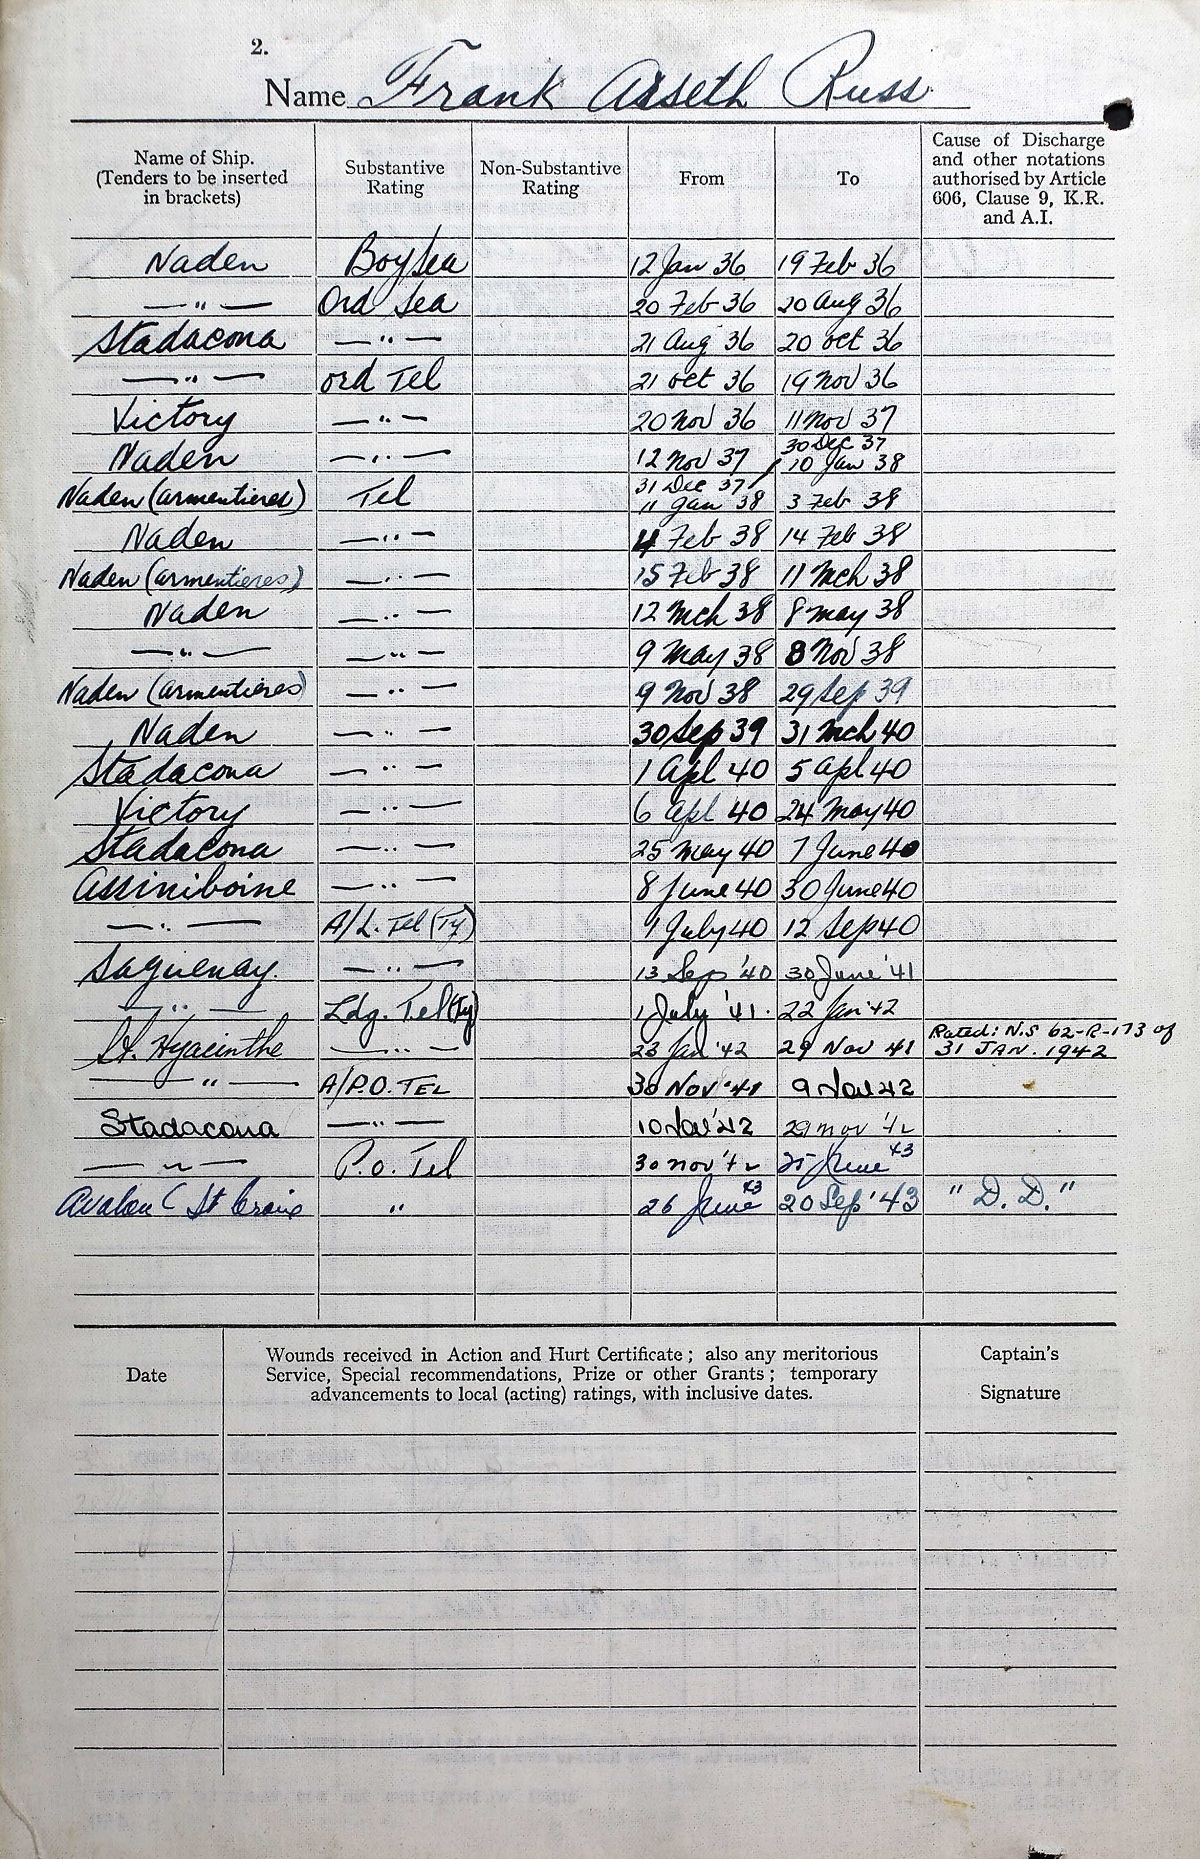 2.
Name Frank Asseth Russ
Name of Ship. (Tenders to be inserted in brackets) Substantive Rating Non-Substantive Rating From To Cause of Discharge and other notations authorised by Article 606, Clause 9, K.R. and A.I.
Naden Boy Sea 12 Jan 36 19 Feb 36
— " — Ord Sea 20 Feb 36 20 Aug 36
Stadacona — " — 21 Aug 36 20 oct 36
— " — ord Tel 21 oct 36 19 Nov 36
Victory — " — 20 Nov 36 11 Nov 37
Naden — " — 12 Nov 37 30 Dec 37 / 10 Jan 38
Naden (armentieres) Tel 31 Dec 37 / 11 Jan 38 3 Feb 38
Naden — " — 4 Feb 38 14 Feb 38
Naden (armentieres) — " — 15 Feb 38 11 Mch 38
Naden — " — 12 Mch 38 8 May 38
— " — — " — 9 May 38 8 Nov 38
Naden (armentieres) — " — 9 Nov 38 29 Sep 39
Naden — " — 30 Sep 39 31 Mch 40
Stadacona — " — 1 Apl 40 5 Apl 40
Victory — " — 6 Apl 40 24 May 40
Stadacona — " — 25 May 40 7 June 40
Assiniboine — " — 8 June 40 30 June 40
— " — A/L. Tel (Ty) 1 July 40 12 Sep 40
Saguenay. — " — 13 Sep '40 30 June '41
— " — Ldg. Tel (Ty) 1 July '41. 22 Jan '42
St. Hyacinthe — " — 23 Jan '42 29 Nov 41 Rated: N.S 62-R-173 of 31 JAN. 1942
— " — A/P.O. TEL 30 Nov '41 9 42
Stadacona — " — 10 '42 29 Nov '42
— " — P.O. Tel 30 Nov '42 25 June 43
Avalon (St Croix " 26 June 43 20 Sep '43 "D.D."
Date Wounds received in Action and Hurt Certificate; also any meritorious Service, Special recommendations, Prize or other Grants; temporary advancements to local (acting) ratings, with inclusive dates. Captain's Signature